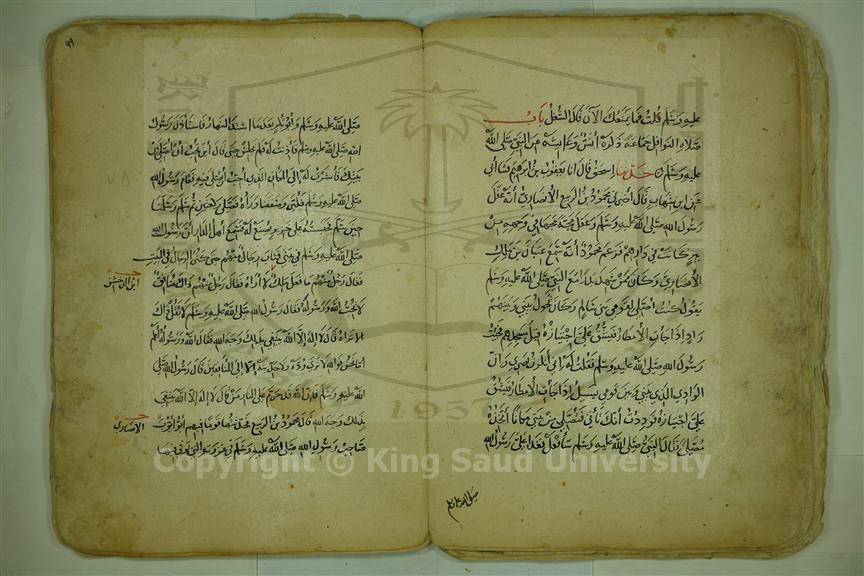 عليه وسلم قلت فما يمنعك الآن قال الشغل باب
صلاة النوافل جماعة ذكره أنس وعائشة عن النبي صلى الله
عليه وسلم حدثنا إسحق قال انا يعقوب بن إبرهيم قال نا أبي
عن ابن شهاب قال أخبرني محمود بن الربيع الأنصاري أنه عقل
رسول الله صلى الله عليه وسلم وعقل مجة مجها في وجهه من
بير كانت في دارهم فزعم محمود أنه سمع عتبان بن مالك
الأنصاري وكان ممن شهد بدرا مع النبي صلى الله عليه وسلم
يقول كنت أصلي لقومي بني سالم وكان يحول بيني وبينهم
واد إذا جاءت الأمطار فيشق علي اجتيازه قبل مسجدهم فجئت
رسول الله صلى الله عليه وسلم فقلت له إني أنكرت بصري وان
الوادي الذي بيني وبين قومي يسيل إذا جاءت الأمطار فيشق
علي اجتيازه فوددت أنك تأتي فتصلي من بيتي مكانا أتخذه
مصلى فقال النبي صلى الله عليه وسلم سأفعل فغدا علي رسول الله
صلى الله عليه وسلم
٩٩
صلى الله عليه وسلم وأبو بكر بعد ما اشتد النهار فاستأذن رسول
الله صلى الله عليه وسلم فأذنت له فلم يجلس حتى قال أين تحب أن أصلي من
بيتك فأشرت له إلى المكان الذي أحب أن يصلي فيه فقام رسول الله
صلى الله عليه وسلم فكبر وصففنا وراءه فصلى ركعتين ثم سلم وسلمنا
حين سلم فحبسته على خزير يصنع له فسمع أهل الدار أن رسول الله
صلى الله عليه وسلم في بيتي فثاب رجال منهم حتى كثر الرجال في البيت
فقال رجل منهم ما فعل مالك لا أراه فقال رجل منهم ذاك منافق
لا يحب الله ورسوله فقال رسول الله صلى الله عليه وسلم لا تقل ذاك
الا تراه قال لا إله إلا الله يبتغي بذلك وجه الله فقال الله ورسوله أعلم
أما نحن فوالله لا نرى وده ولا حديثه إلا إلى المنافقين قال رسول الله صلى
الله عليه وسلم فإن الله قد حرم على النار من قال لا إله إلا الله يبتغي
بذلك وجه الله قال محمود بن الربيع فحدثتها قوما فيهم أبو أيوب
الانصاري
صاحب رسول الله صلى الله عليه وسلم في غزوته التي توفي فيها
1957
Copyright © King Saud University